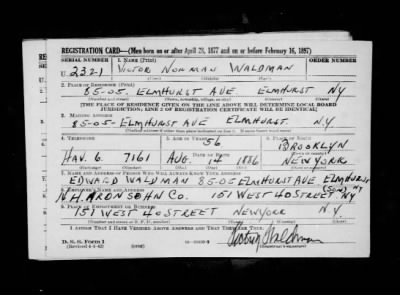 REGISTRATION CARD—(Men born on or after April 28, 1877 and on or before February 16, 1897)
SERIAL NUMBER 1. NAME (Print) ORDER NUMBER
U 2321 VICTOR NORMAN WALDMAN
(First) (Middle) (Last)
2. PLACE OF RESIDENCE (Print)
85-05. ELMHURST AVE. ELMHURST NY
(Number and street) (Town, township, village, or city) (County) (State)
[THE PLACE OF RESIDENCE GIVEN ON THE LINE ABOVE WILL DETERMINE LOCAL BOARD
JURISDICTION; LINE 2 OF REGISTRATION CERTIFICATE WILL BE IDENTICAL]
3. MAILING ADDRESS
85-05. ELMHURST AVE ELMHURST. N.Y.
4. TELEPHONE 5. AGE IN YEARS 6. PLACE OF BIRTH
56 BROOKLYN
DATE OF BIRTH
HAV. 6 7161 AUG. 14 1886 NEW YORK
7. NAME AND ADDRESS OF PERSON WHO WILL ALWAYS KNOW YOUR ADDRESS
EDWARD WALDMAN 85-05 ELMHURST AVE ELMHURST
(SON) NY
8. EMPLOYER'S NAME AND ADDRESS
N.H. ARONSOHN CO. 151 WEST 40 STREET. NY
9. PLACE OF EMPLOYMENT OR BUSINESS
151 WEST 40 STREET NEW YORK N.Y.
(Number and street or R. F. D. number) (Town) (County) (State)
I AFFIRM THAT I HAVE VERIFIED ABOVE ANSWERS AND THAT THEY ARE TRUE.
D. S. S. Form 1
(Revised 4-1-42) Waldman